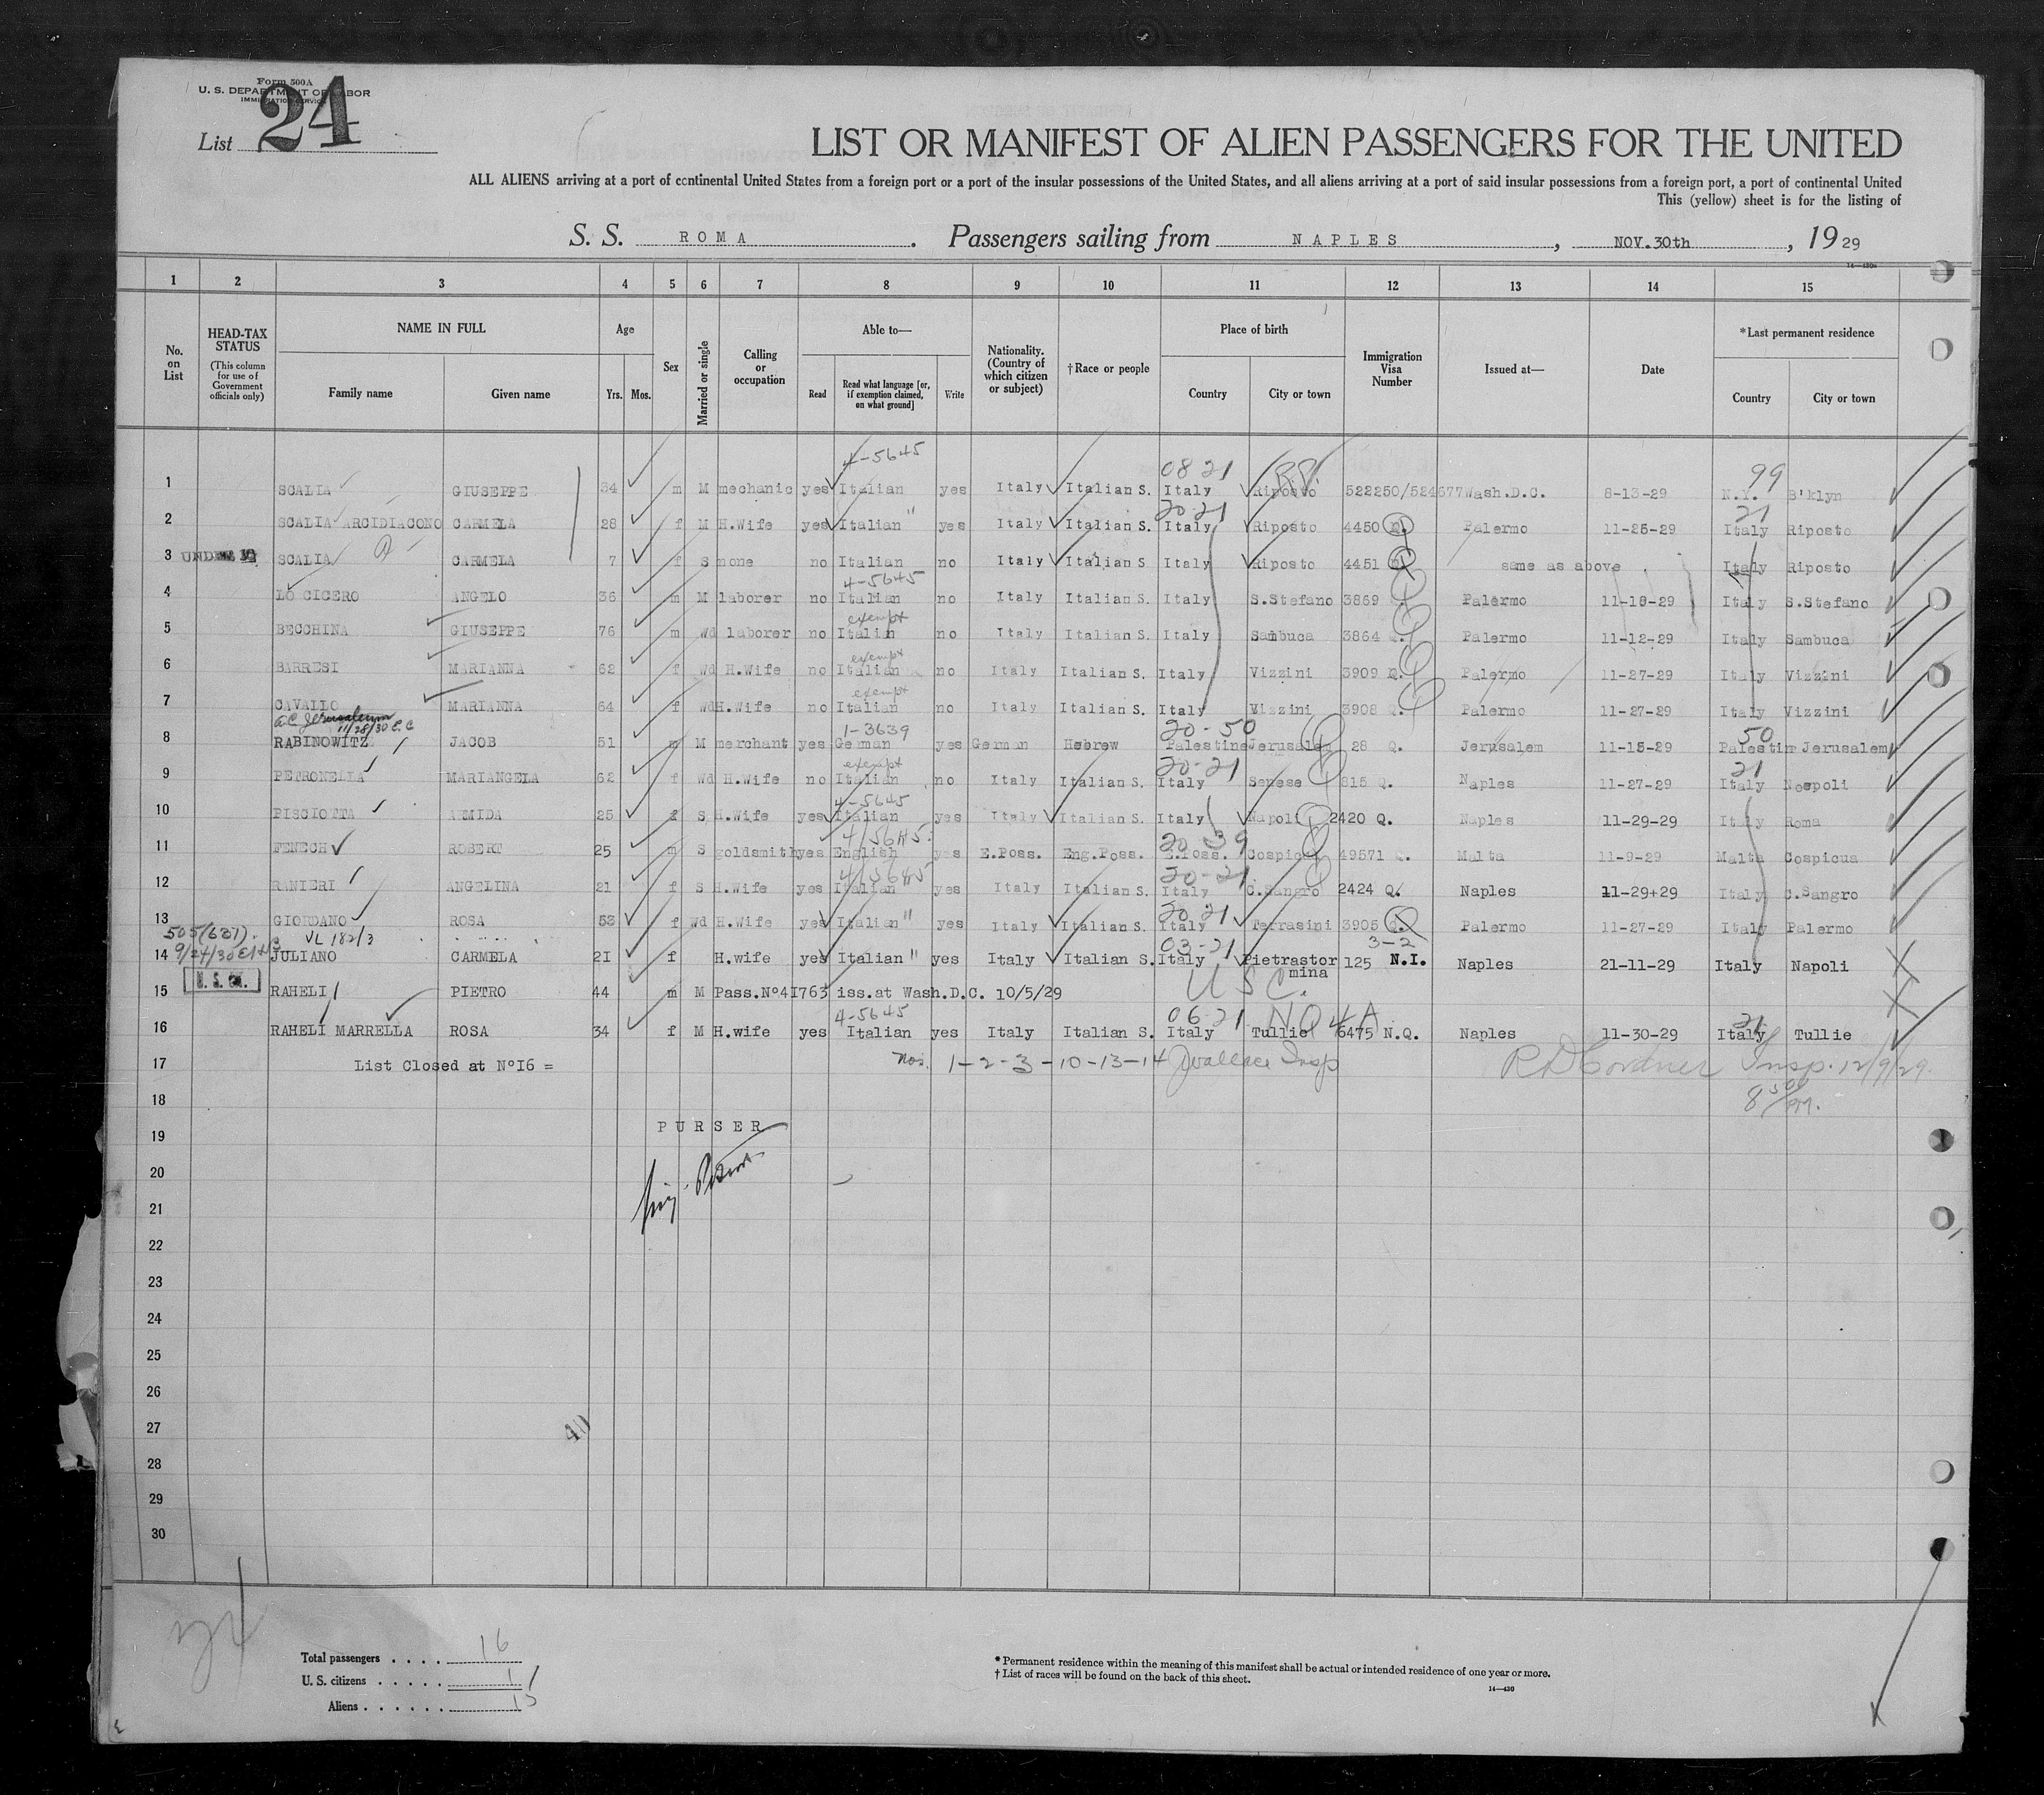 Form 500A
U. S. DEPARTMENT OF LABOR
IMMIGRATION SERVICE
List 24
LIST OR MANIFEST OF ALIEN PASSENGERS FOR THE UNITED
ALL ALIENS arriving at a port of continental United States from a foreign port or a port of the insular possessions of the United States, and all aliens arriving at a port of said insular possessions from a foreign port, a port of continental United
This (yellow) sheet is for the listing of
S. S. ROMA . Passengers sailing from NAPLES , NOV.30th , 19 29
14—430a
1 2 3 4 5 6 7 8 9 10 11 12 13 14 15
No. on List
HEAD-TAX STATUS (This column for use of Government officials only)
NAME IN FULL Family name Given name
Age Yrs. Mos.
Sex
Married or single
Calling or occupation
Able to— Read Read what language [or, if exemption claimed, on what ground] Write
Nationality. (Country of which citizen or subject)
†Race or people
Place of birth Country City or town
Immigration Visa Number
Issued at—
Date
*Last permanent residence Country City or town
4-5645 08 21 99
1 SCALIA GIUSEPPE 34 m M mechanic yes Italian yes Italy Italian S. Italy Riposto 522250/524677 Wash.D.C. 8-13-29 N.Y. B'klyn
20-21 21
2 SCALIA ARCIDIACONO CARMELA 28 f M H.Wife yes Italian " yes Italy Italian S. Italy Riposto 4450 Q. Palermo 11-25-29 Italy Riposto
3 UNDER 16 SCALIA CARMELA 7 f S none no Italian no Italy Italian S. Italy Riposto 4451 Q. same as above . Italy Riposto
4-5645
4 LO CICERO ANGELO 36 m M laborer no Italian no Italy Italian S. Italy S.Stefano 3869 Palermo 11-18-29 Italy S.Stefano
exempt
5 BECCHINA GIUSEPPE 76 m Wd laborer no Italin no Italy Italian S. Italy Sambuca 3864 Q. Palermo 11-12-29 Italy Sambuca
exempt
6 BARRESI MARIANNA 62 f Wd H.Wife no Italian no Italy Italian S. Italy Vizzini 3909 Q. Palermo 11-27-29 Italy Vizzini
exempt
7 CAVALLO MARIANNA 64 f Wd H.Wife no Italian no Italy Italian S. Italy Vizzini 3908 Q. Palermo 11-27-29 Italy Vizzini
a.c. Jerusalem 11/28/30 E.C 1-3639 20-50 50
8 RABINOWITZ JACOB 51 m M merchant yes German yes German Hebrew Palestine Jerusalem 28 Q. Jerusalem 11-15-29 Palestin Jerusalem
exempt 20-21 21
9 PETRONELLA MARIANGELA 62 f Wd H.Wife no Italian no Italy Italian S. Italy Senese 815 Q. Naples 11-27-29 Italy Noepoli
4-5645
10 PISCIOTTA ARMIDA 25 f S H.Wife yes Italian yes Italy Italian S. Italy Napoli 2420 Q. Naples 11-29-29 Italy Roma
4/5645 20 39
11 FENECH ROBERT 25 m S goldsmith yes English yes E.Poss. Eng.Poss. E.Poss. Cospicua 49571 Q. Malta 11-9-29 Malta Cospicua
4/5645 20-21
12 RANIERI ANGELINA 21 f S H.Wife yes Italian yes Italy Italian S. Italy C.Sangro 2424 Q. Naples 11-29+29 Italy C.Sangro
20 21
13 GIORDANO ROSA 53 f Wd H.Wife yes Italian " yes Italy Italian S. Italy Terrasini 3905 Q. Palermo 11-27-29 Italy Palermo
505(631). VL 182/3 03-21 3-2
14 JULIANO CARMELA 2I f H.wife yes Italian " yes Italy Italian S. Italy Pietrastor mina 125 N.I. Naples 21-11-29 Italy Napoli
15 RAHELI PIETRO 44 m M Pass.Nº4I763 iss.at Wash.D.C. 10/5/29 U S C.
4-5645 06-21 NQ 4A 21
16 RAHELI MARRELLA ROSA 34 f M H.wife yes Italian yes Italy Italian S. Italy Tullie 6475 N.Q. Naples 11-30-29 Italy Tullie
17 List Closed at NºI6 = Nos. 1-2-3-10-13-14 JWallace Insp R D Cordner Insp. 12/9/29.
18 8 50/PM.
19 PURSER
20
21
22
23
24
25
26
27
40
28
29
30
Total passengers . . . . 16
U. S. citizens . . . . . 1
Aliens . . . . . . 15
* Permanent residence within the meaning of this manifest shall be actual or intended residence of one year or more.
† List of races will be found on the back of this sheet.
14—430